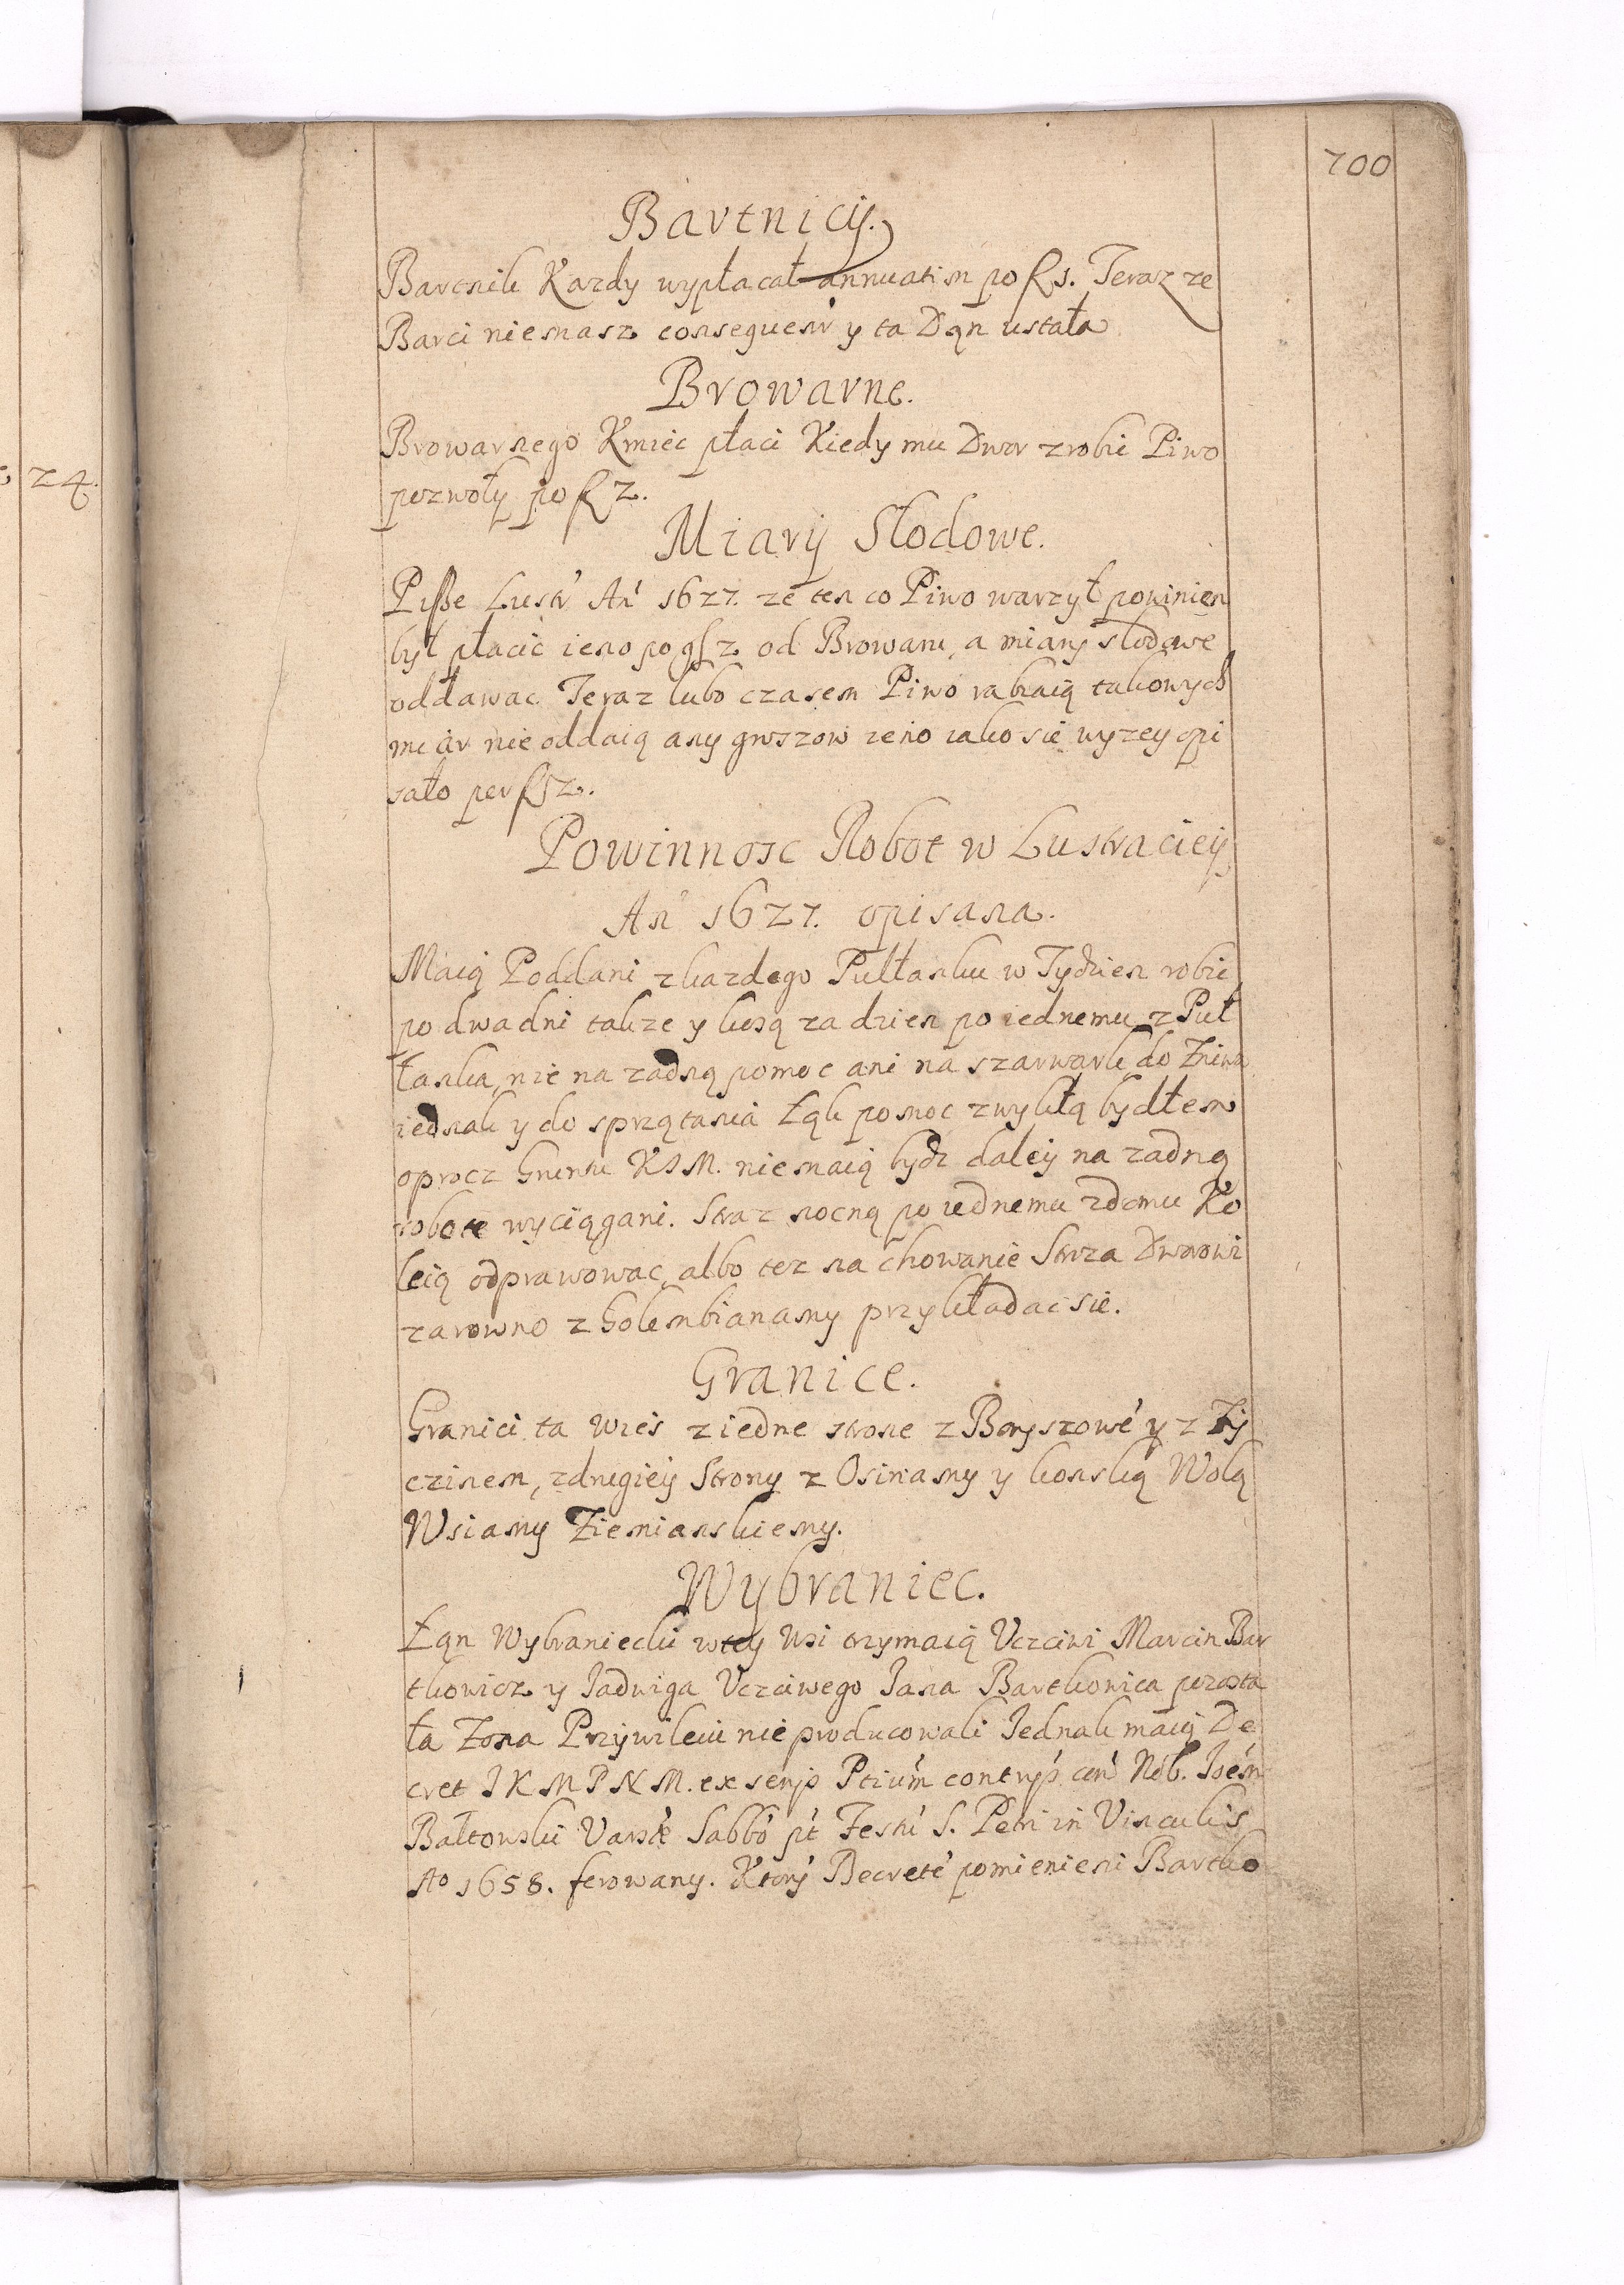 700
Bartnicÿ.
Bartnik Kazdy wypłacał annuatim po f 1. Teraz ze
Barci niemasz consequenr y ta Dan ustała
Browarne.
Browarnego Kmieć płaci Kiedy mu Dwor zrobic Piwo
pozwoly po f 2.
Miarÿ Słodowe.
Pisze Lustr Aň 1627. ze ten co Piwo warzył powinien
był płacic ieno po gſ 2 od Browaru, a miary słodowe
oddawac. Teraz lubo czasem Piwo rabiaią takowych
miar nie oddaią any groszow ieno iako się wyzey opi
sało per
Powinnosc Robot w Lustraciey
Aň 1627. opisana.
Maią Poddani z kazdego Pułłanku w Tydzien robic
po dwa dni takze y kosą za dzien po iednemu z Puł
łanku, nie na zadną pomoc ani na szarwark do Zniwa
iednak y do sprzątania Łąk pomoc zwykłą bydłem
oprocz Gruntu KIM. niemaią bydz daley na zadną
robote wyciągani. Straz nocną po iednemu zdomu Ko
leią odprawowac, albo tez na chowanie Stroza Dworowi
zarowno z Golembianamy przykładac się.
Granice.
Granici ta wies z iedne strone z Boryszowé y z Zÿ
czinem, zdrugieÿ Strony z Osinamy y konską Wolą
Wsiamy Ziemianskiemy.
Wybraniec.
Łąn Wybraniecki wtey Wsi trzymaią Uczciwi Marcin Bar
tkowicz y Jadwiga Uczciwego Jana Bartkowica pozosta
ła Zona Przywileiu nie producowali Jednak maią De
cret J K M P N M. ex senjo Ptium contrjo Nob. Joém
Bałtowski Varsae Sabbo pt Festu S. Petri in Vinculis
Ao 1658. ferowany. Ktory Decreté pomienieni Bartko
24.